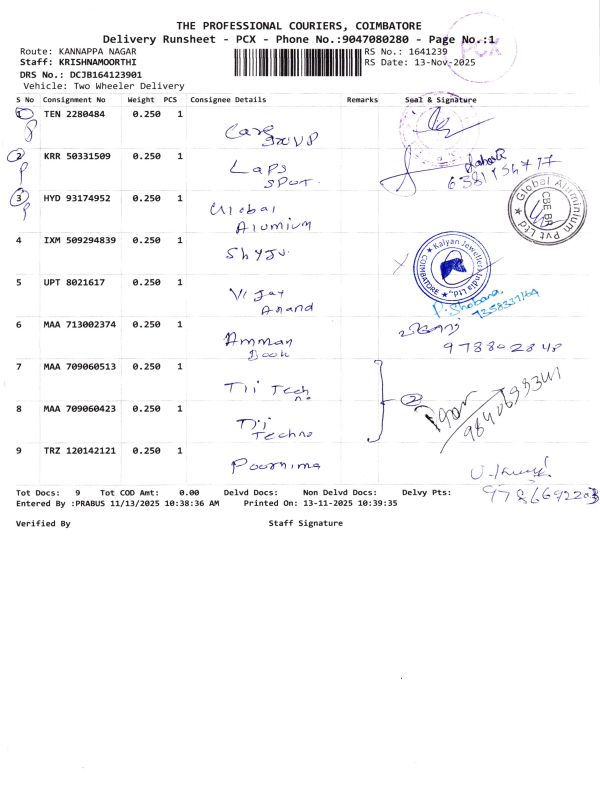 THE PROFESSIONAL COURIERS, COIMBATORE
Delivery Runsheet - PCX - Phone No.:9047080280 - Page No.:1
PCX
Route: KANNAPPA NAGAR
RS No.: 1641239
Staff: KRISHNAMOORTHI
RS Date: 13-Nov-2025
DRS No.: DCJB164123901
Vehicle: Two Wheeler Delivery
S No Consignment No Weight PCS Consignee Details Remarks Seal & Signature
1 TEN 2280484 0.250 1
Care
2 KRR 50331509 0.250 1
Laps
SPOT.
3 HYD 93174952 0.250 1
Global
Alumium
Global Aluminium Pvt Ltd
CBE BR
4 IXM 509294839 0.250 1
Shyju.
Kalyan Jewellers India Ltd.,
COIMBATORE
5 UPT 8021617 0.250 1
Vijay
Anand
P. Shobana
6 MAA 713002374 0.250 1
Amman
Book
7 MAA 709060513 1 0.250
Tii Tech
2
8 MAA 709060423 0.250 1
Tii
Techno
9 TRZ 120142121 0.250 1
Poornima
9786692203
Tot Docs: 9 Tot COD Amt: 0.00 Delvd Docs: Non Delvd Docs: Delvy Pts:
Entered By :PRABUS 11/13/2025 10:38:36 AM Printed On: 13-11-2025 10:39:35
Verified By Staff Signature